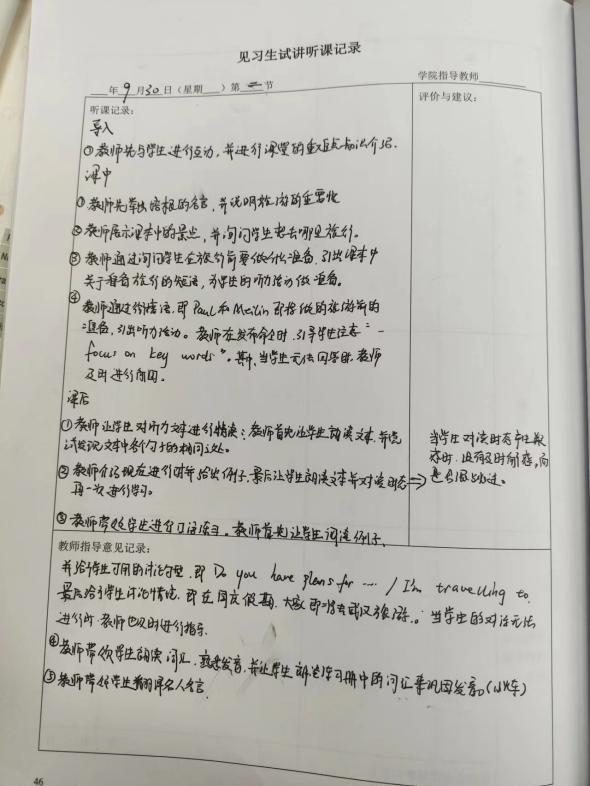 见习生试讲听课记录
学院指导教师
年 9 月 30 日（星期 ）第 二 节
评价与建议：
听课记录：
导入
①教师先与学生进行互动，并进行课堂的重点知识介绍.
课中
①教师先举出培根的名言，并说明旅游的重要性
②教师展示课本中的景点，并询问学生想去哪里旅行。
③教师通过询问学生在旅行前要做什么准备，引出课本中
关于准备旅行的短语，为学生的听力活动做准备。
④教师通过情境，即Paul和Meilin即将做的旅游前的
准备，引出听力活动。教师在发布命令时，引导学生注意“
focus on key words”。其中，当学生无法回答时，教师
及时进行
课后
①教师让学生对听力文本进行精读：教师首先让学生朗读文本，并尝
试发现文本中各个句子的相同之处。
②教师介绍现在进行时并给出例子，最后让学生朗读文本并对该时态⇒
再一次进行学习。
当学生对该时态产生
时，没有及时解答，而
是
③教师带领学生进行口语练习。教师首先让学生阅读例子，
教师指导意见记录：
并给学生可用的讨论句型，即 Do you have plans for .... / I'm travelling to.
最后给予学生讨论情境，即在国庆假期，大家即将去武汉旅游。当学生的对话无法
进行时，教师也及时进行指导.
④教师带领学生朗读词汇，熟悉发音，并让学生朗读练习册中的词汇来巩固发音。(小火车)
⑤教师带领学生翻译名人名言.
46